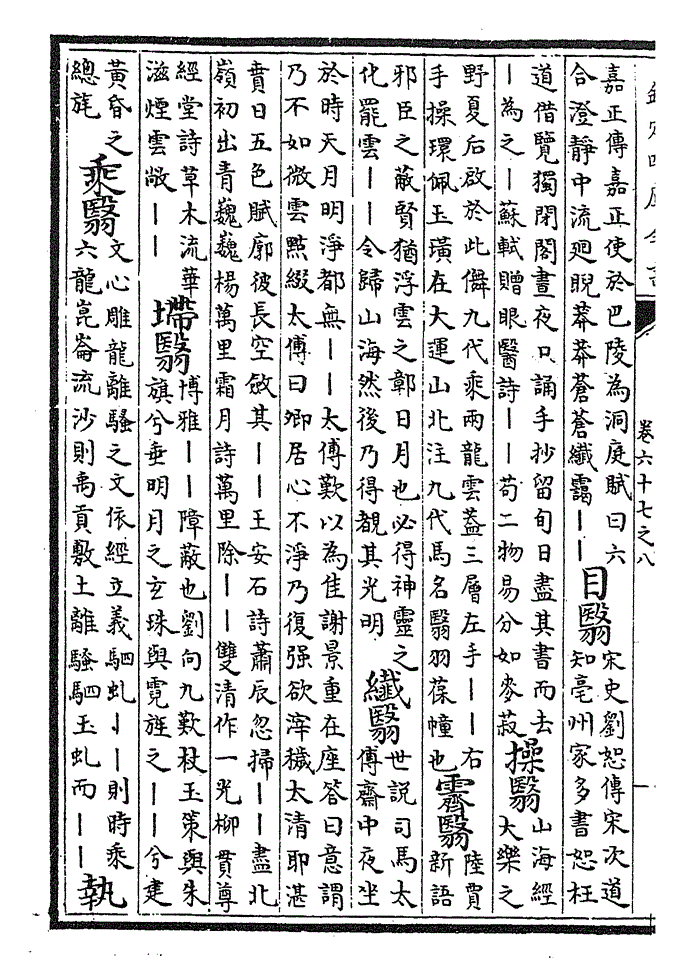 欽定四庫全書
卷六十七之八
嘉正傳嘉正使於巴陵為洞庭賦曰六
合澄靜中流迴睨莽莽蒼蒼纖靄丨丨
目翳
宋史劉恕傳宋次道
知亳州家多書恕枉
道借覽獨閉閣晝夜口誦手抄留旬日盡其書而去
丨為之丨蘇軾贈眼醫詩丨丨苟二物易分如麥菽
操翳
山海經
大樂之
野夏后啟於此儛九代乘兩龍雲蓋三層左手丨丨右
手操環佩玉璜在大運山北注九代馬名翳羽葆幢也
霽翳
陸賈
新語
邪臣之蔽賢猶浮雲之鄣日月也必得神靈之
化罷雲丨丨令歸山海然後乃得覩其光明
纖翳
世説司馬太
傅齋中夜坐
於時天月明淨都無丨丨太傅歎以為佳謝景重在座答曰意謂
乃不如微雲㸃綴太傅曰卿居心不淨乃復强欲滓穢太清耶湛
賁日五色賦廓彼長空斂其丨丨王安石詩蕭辰忽掃丨丨盡北
嶺初出青巍巍楊萬里霜月詩萬里除丨丨雙清作一光柳貫尊
經堂詩草木流華
滋煙雲敞丨丨
墆翳
博雅丨丨障蔽也劉向九歎杖玉策與朱
旗兮垂明月之玄珠與霓旌之丨丨兮建
黃昏之
總旄
乘翳
文心雕龍離騷之文依經立義駟虬丨丨則時乘
六龍崑崙流沙則禹貢敷土離騷駟玉虬而丨丨
執